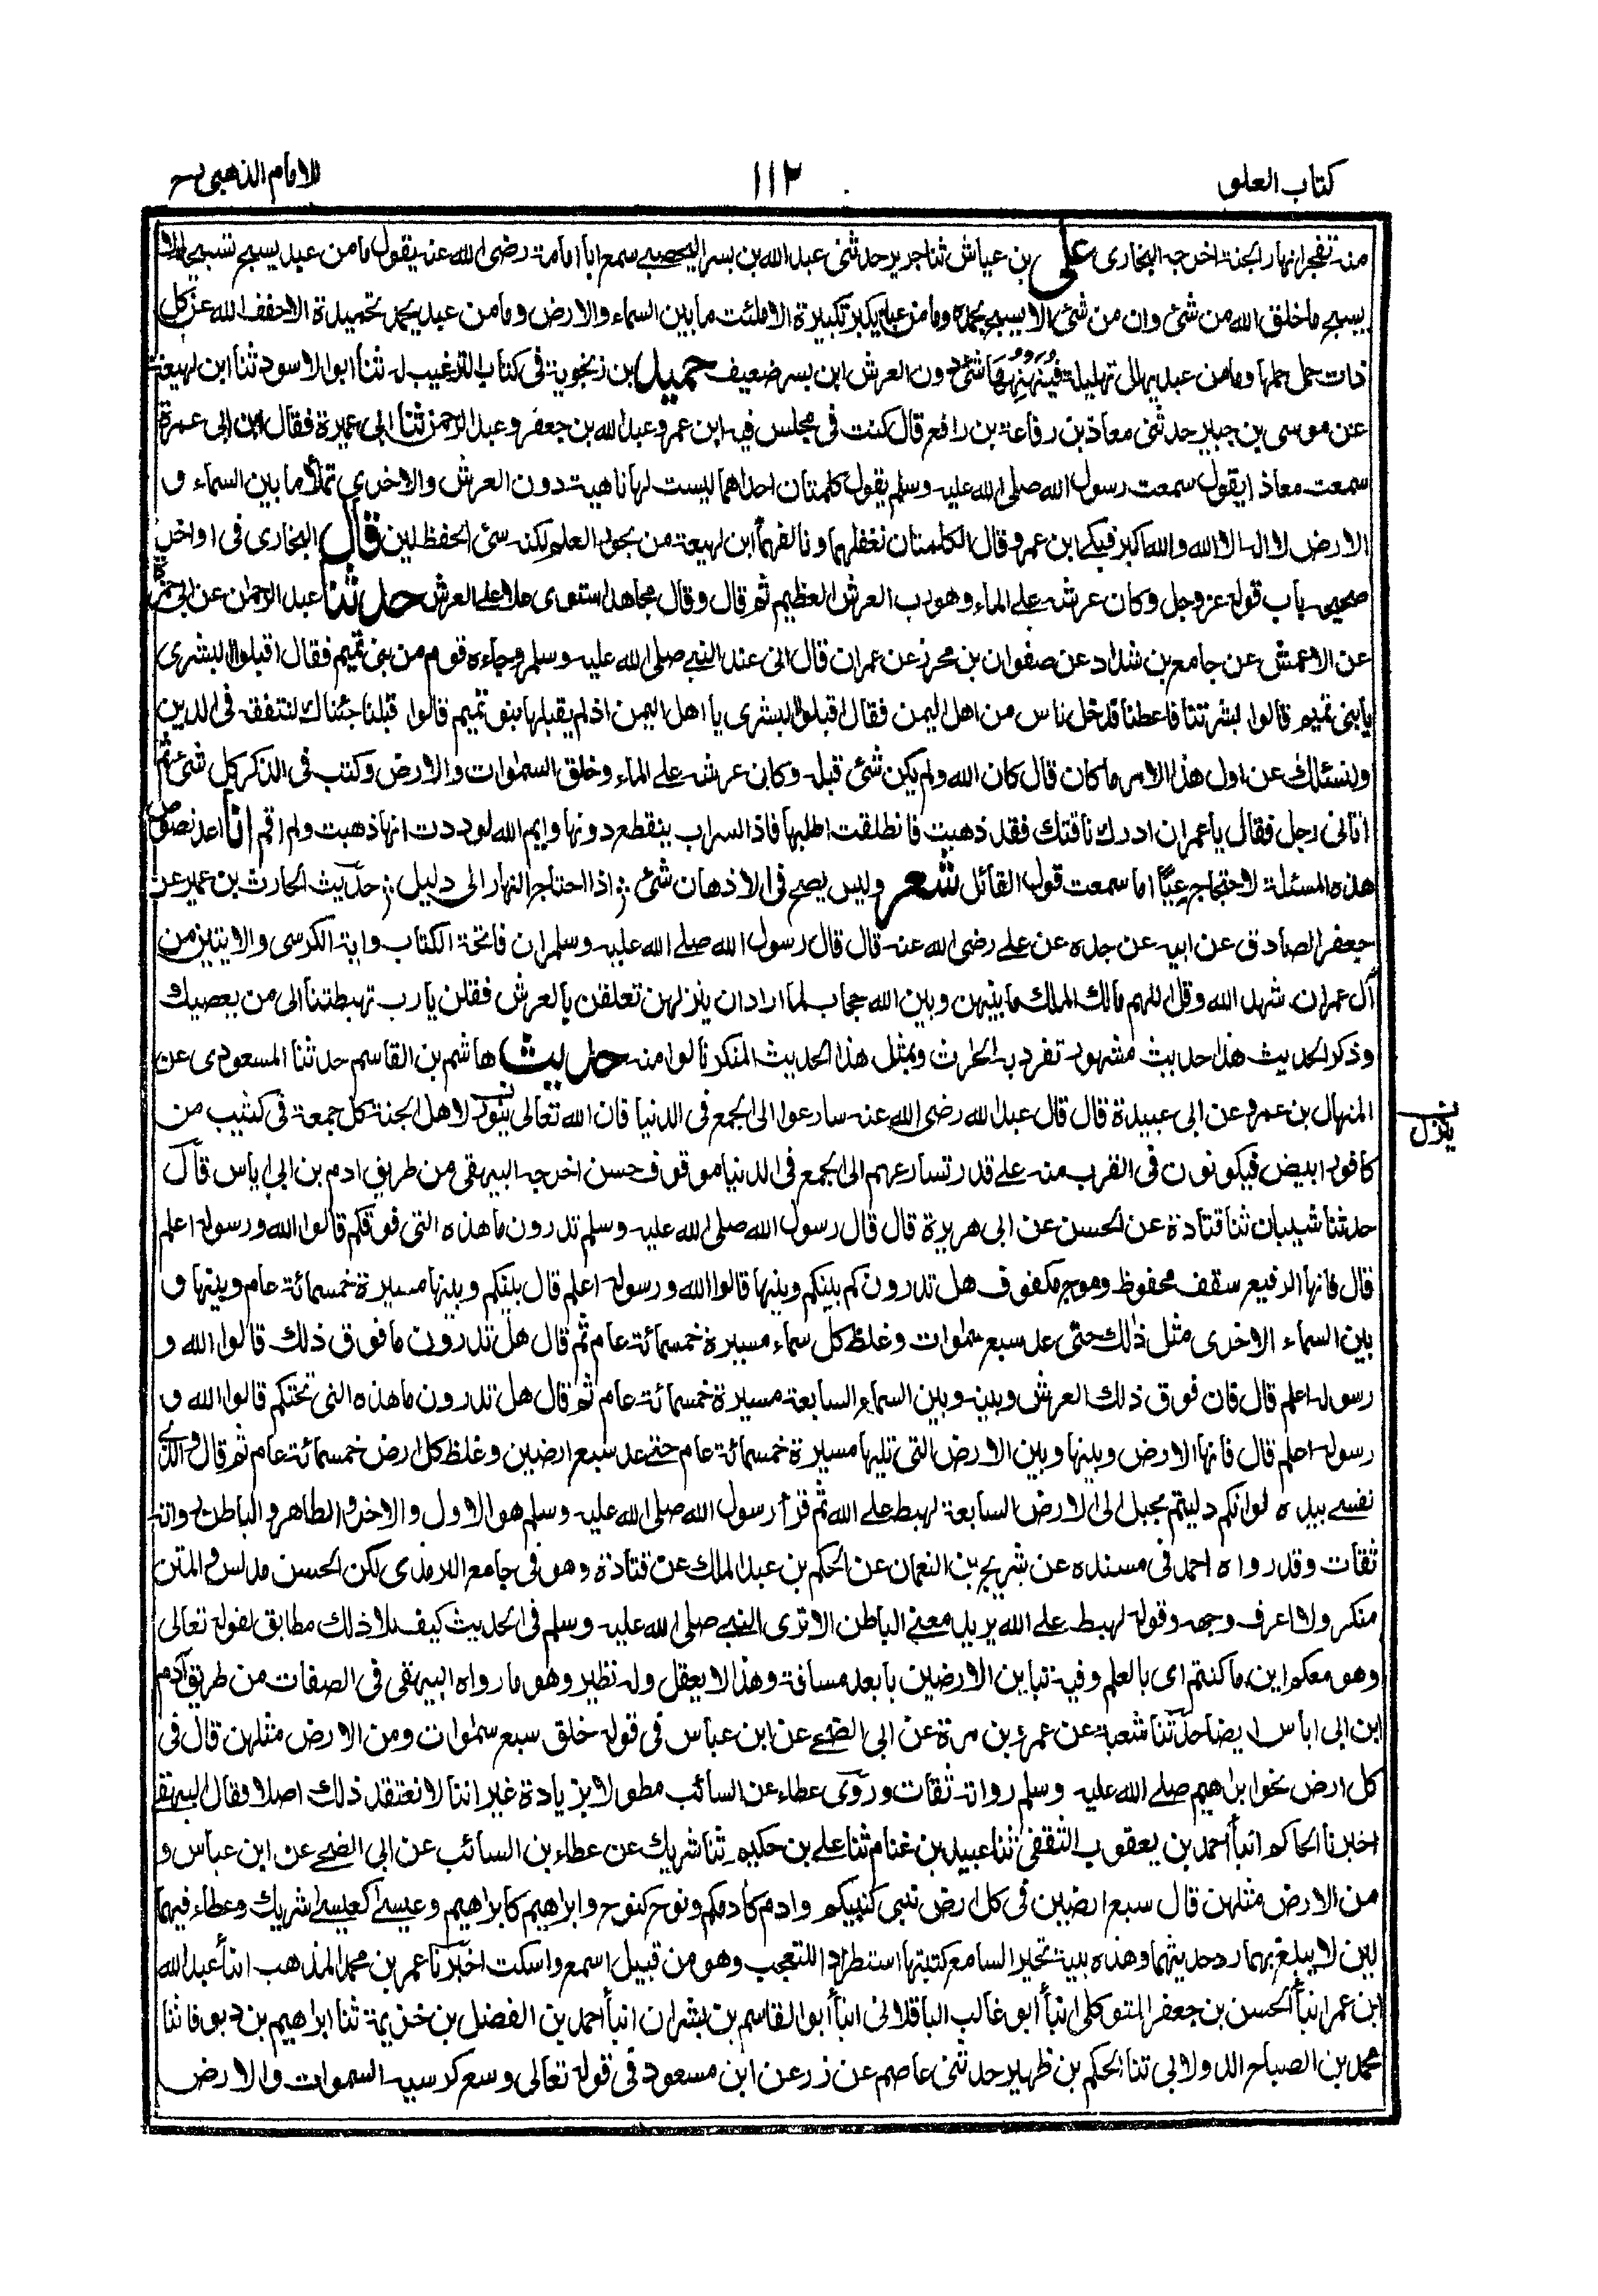 كتاب العلو
١١٢
للامام الذهبي رح
منه تفجر انهار الجنة اخرجه البخارى على بن عياش ثنا جرير حدثنى عبد الله بن بسر اليحصبى سمع ابا امامة رضى الله عنه يقول ما من عبد يسبح تسبيحة الا
يسبح ما خلق الله من شئ وان من شئ الا يسبح بحمده وما من عبد يكبر تكبيرة الا ملئت ما بين السماء والارض وما من عبد يحمد تحميدة الا خفف الله عن كل
ذات حمل حملها وما من عبد يهلل تهليلة فينهنهها شئ دون العرش ابن بسر ضعيف حميد بن زنجوية فى كتاب الترغيب له ثنا ابو الاسود ثنا ابن لهيعة
عن موسى بن جبير حدثنى معاذ بن رفاعة بن رافع قال كنت فى مجلس فيه ابن عمر وعبد الله بن جعفر وعبد الرحمن ثنا ابى عميرة فقال ابن ابى عمرة
سمعت معاذا يقول سمعت رسول الله صلى الله عليه وسلم يقول كلمتان احداهما ليست لها ناهية دون العرش والاخرى تملأ ما بين السماء و
الارض لا اله الا الله والله اكبر فبكى ابن عمر وقال الكلمتان نغفلهما ونالفهما ابن لهيعة من بحور العلم لكنه سئ الحفظ لين قال البخارى فى اواخر
صحيحه باب قوله عز وجل وكان عرشه على الماء وهو رب العرش العظيم ثم قال وقال مجاهد استوى علا على العرش حدثنا عبد الرحمن عن ابى حمزة
عن الاعمش عن جامع بن شداد عن صفوان بن محرز عن عمران قال انى عند النبى صلى الله عليه وسلم وجاءه قوم من بنى تميم فقال اقبلوا البشرى
يا بنى تميم قالوا بشرتنا فاعطنا فدخل ناس من اهل اليمن فقال اقبلوا البشرى يا اهل اليمن اذ لم يقبلها بنو تميم قالوا قبلنا جئناك لنتفقه فى الدين
ولنسئلك عن اول هذا الامر ما كان قال كان الله ولم يكن شئ قبله وكان عرشه على الماء وخلق السموات والارض وكتب فى الذكر كل شئ ثم
اتانى رجل فقال يا عمران ادرك ناقتك فقد ذهبت فانطلقت اطلبها فاذا السراب ينقطع دونها وايم الله لوددت انها ذهبت ولم اقم انا اعد نصوص
هذه المسئلة لاحتجاج عيا اما سمعت قول القائل شعر وليس يصح فى الاذهان شئ ؛ اذا احتاج النهار الى دليل ؛ حديث الحارث بن عمير عن
جعفر الصادق عن ابيه عن جده عن على رضى الله عنه قال قال رسول الله صلى الله عليه وسلم ان فاتحة الكتاب واية الكرسى والايتين من
آل عمران شهد الله وقل اللهم مالك الملك ما بينهن وبين الله حجاب لما اراد ان ينزلهن تعلقن بالعرش فقلن يا رب تهبطتنا الى من يعصيك
وذكر الحديث هذا حديث مشهور تفرد به الحارث وبمثل هذا الحديث المنكر نالوا منه حديث هاشم بن القاسم حدثنا المسعودى عن
المنهال بن عمرو عن ابى عبيدة قال قال عبد الله رضى الله عنه سارعوا الى الجمع فى الدنيا فان الله تعالى لاهل الجنة كل جمعة فى كثيب من
ينزل
كافور ابيض فيكونون فى القرب منه على قدر تسارعهم الى الجمع فى الدنيا موقوف حسن اخرجه البيهقى من طريق ادم بن ابى اياس قال
حدثنا شيبان ثنا قتادة عن الحسن عن ابى هريرة قال قال رسول الله صلى الله عليه وسلم تدرون ما هذه التى فوقكم قالوا الله ورسوله اعلم
قال فانها الرفيع سقف محفوظ وموج مكفوف هل تدرون كم بينكم وبينها قالوا الله ورسوله اعلم قال بينكم وبينها مسيرة خمسمائة عام وبينها و
بين السماء الاخرى مثل ذلك حتى عد سبع سموات وغلظ كل سماء مسيرة خمسمائة عام ثم قال هل تدرون ما فوق ذلك قالوا الله و
رسوله اعلم قال فان فوق ذلك العرش وبينه وبين السماء السابعة مسيرة خمسمائة عام ثم قال هل تدرون ما هذه التى تحتكم قالوا الله و
رسوله اعلم قال فانها الارض وبينها وبين الارض التى تليها مسيرة خمسمائة عام حتى عد سبع ارضين وغلظ كل ارض خمسمائة عام ثم قال والذى
نفسى بيده لو انكم دليتم بحبل الى الارض السابعة لهبط على الله ثم قرأ رسول الله صلى الله عليه وسلم هو الاول والاخر والظاهر والباطن رواته
ثقات وقد رواه احمد فى مسنده عن شريح بن النعمان عن الحكم بن عبد الملك عن قتادة وهو فى جامع الترمذى لكن الحسن مدلس والمتن
منكر ولا اعرف وجهه وقوله لهبط على الله يريد معنى الباطن الا ترى النبى صلى الله عليه وسلم فى الحديث كيف تلا ذلك مطابق لقوله تعالى
وهو معكم اين ما كنتم اى بالعلم وفيه تباين الارضين بابعد مسافة وهذا لا يعقل وله نظير وهو ما رواه البيهقى فى الصفات من طريق آدم
ابن ابى اياس ايضا حدثنا شعبة عن عمرو بن مرة عن ابى الضحى عن ابن عباس فى قوله خلق سبع سموات ومن الارض مثلهن قال فى
كل ارض نحو ابراهيم صلى الله عليه وسلم رواته ثقات وروى عطاء عن السائب مطولا بزيادة غير اننا لا نعتقد ذلك اصلا فقال البيهقى
اخبرنا الحاكم انبأ احمد بن يعقوب الثقفى ثنا عبيد بن غنام ثنا على بن حكيم ثنا شريك عن عطاء بن السائب عن ابى الضحى عن ابن عباس و
من الارض مثلهن قال سبع ارضين فى كل ارض نبى كنبيكم وادم كادمكم ونوح كنوح وابراهيم كابراهيم وعيسى كعيسى شريك وعطاء فيهما
لين لا يبلغ بهما رد حديثهما وهذه بلية تحير السامع كتبتها استطرادا للتعجب وهو من قبيل اسمع واسكت اخبرنا عمر بن محمد المذهب انبأ عبد الله
ابن عمر انبأ الحسن بن جعفر المتوكلى انبأ ابو غالب الباقلانى انبأ ابو القاسم بن بشران انبأ احمد بن الفضل بن خزيمة ثنا ابراهيم بن دبوقا ثنا
محمد بن الصباح الدولابى ثنا الحكم بن ظهير حدثنى عاصم عن زر عن ابن مسعود فى قوله تعالى وسع كرسيه السموات والارض